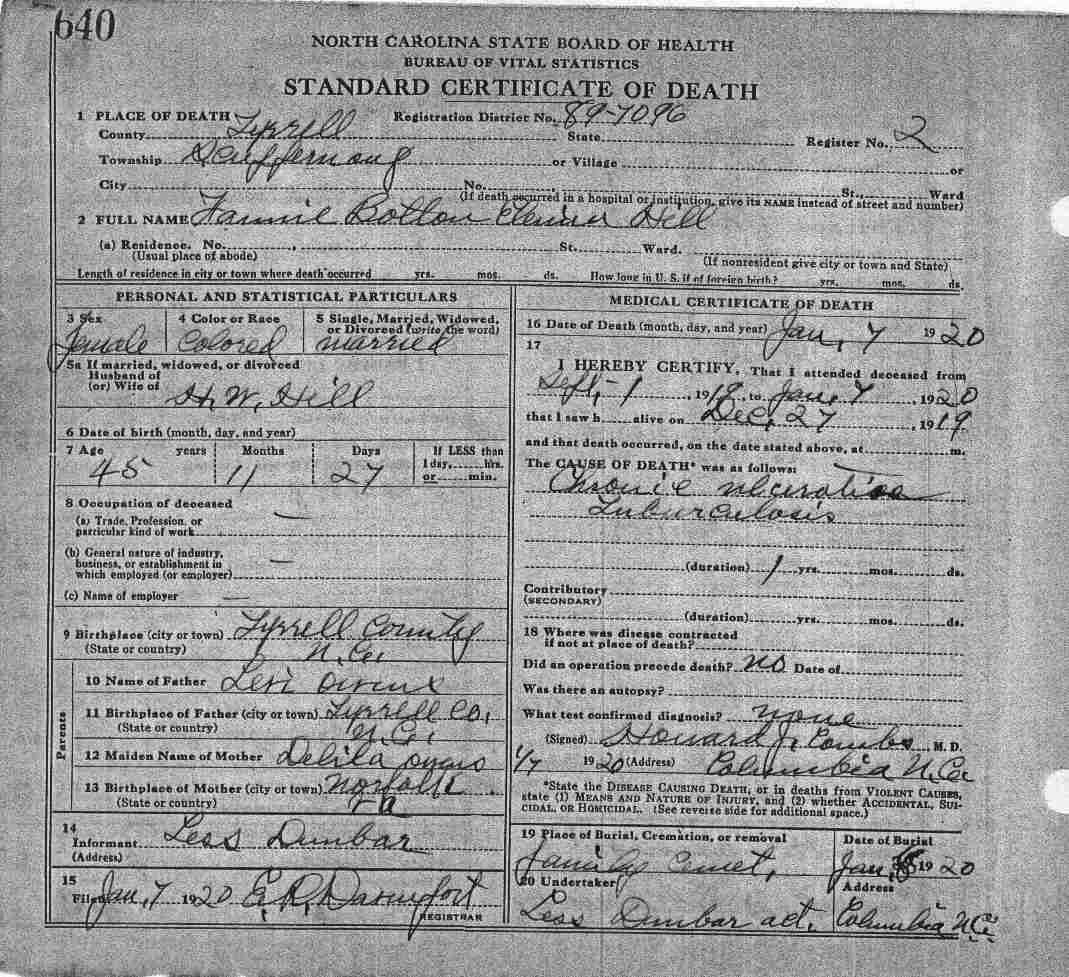 640
NORTH CAROLINA STATE BOARD OF HEALTH
BUREAU OF VITAL STATISTICS
STANDARD CERTIFICATE OF DEATH
1 PLACE OF DEATH Registration District No. 89-7096
County Tyrrell State Register No. 2
Township or Village or
City No. St., Ward
(If death occurred in a hospital or institution, give its NAME instead of street and number)
2 FULL NAME Fannie Hill
(a) Residence. No. , St. Ward.
(Usual place of abode) (If nonresident give city or town and State)
Length of residence in city or town where death occurred yrs. mos. ds. How long in U. S. if of foreign birth? yrs. mos. ds.
PERSONAL AND STATISTICAL PARTICULARS
3 Sex 4 Color or Race 5 Single, Married, Widowed,
or Divorced (write the word)
female Colored married
5a If married, widowed, or divorced
Husband of
(or) Wife of H. W. Hill
6 Date of birth (month, day, and year)
7 Age years Months Days If LESS than
1 day, hrs.
45 11 27 or min.
8 Occupation of deceased
(a) Trade, Profession, or
particular kind of work —
(b) General nature of industry,
business, or establishment in
which employed (or employer) —
(c) Name of employer —
9 Birthplace (city or town) Tyrrell County
(State or country) N.C.
Parents
10 Name of Father Levi
11 Birthplace of Father (city or town) Tyrrell Co.,
(State or country) N.C.
12 Maiden Name of Mother Delila Owens
13 Birthplace of Mother (city or town) Norfolk
(State or country) Va
14
Informant Less Dunbar
(Address)
15
Filed Jan, 7 1920 E. R. Davenport
REGISTRAR
MEDICAL CERTIFICATE OF DEATH
16 Date of Death (month, day, and year) Jan, 7 1920
17
I HEREBY CERTIFY, That I attended deceased from
Sept, - 1, 1919, to Jan, 7, 1920
that I saw h alive on Dec, 27, 1919
and that death occurred, on the date stated above, at m.
The CAUSE OF DEATH* was as follows:
Chronic
Tuburculosis
(duration) 1 yrs. mos. ds.
Contributory
(SECONDARY)
(duration) yrs. mos. ds.
18 Where was disease contracted
if not at place of death?
Did an operation precede death? no Date of
Was there an autopsy?
What test confirmed diagnosis? none
(Signed) Howard J. Combs M. D.
1/7 1920 (Address) Columbia N.C.
*State the DISEASE CAUSING DEATH, or in deaths from VIOLENT CAUSES,
state (1) MEANS AND NATURE OF INJURY, and (2) whether ACCIDENTAL, SUI-
CIDAL, OR HOMICIDAL. (See reverse side for additional space.)
19 Place of Burial, Cremation, or removal Date of Burial
family cemet, Jan, 8 1920
20 Undertaker Address
Less Dunbar act. Columbia N.C.